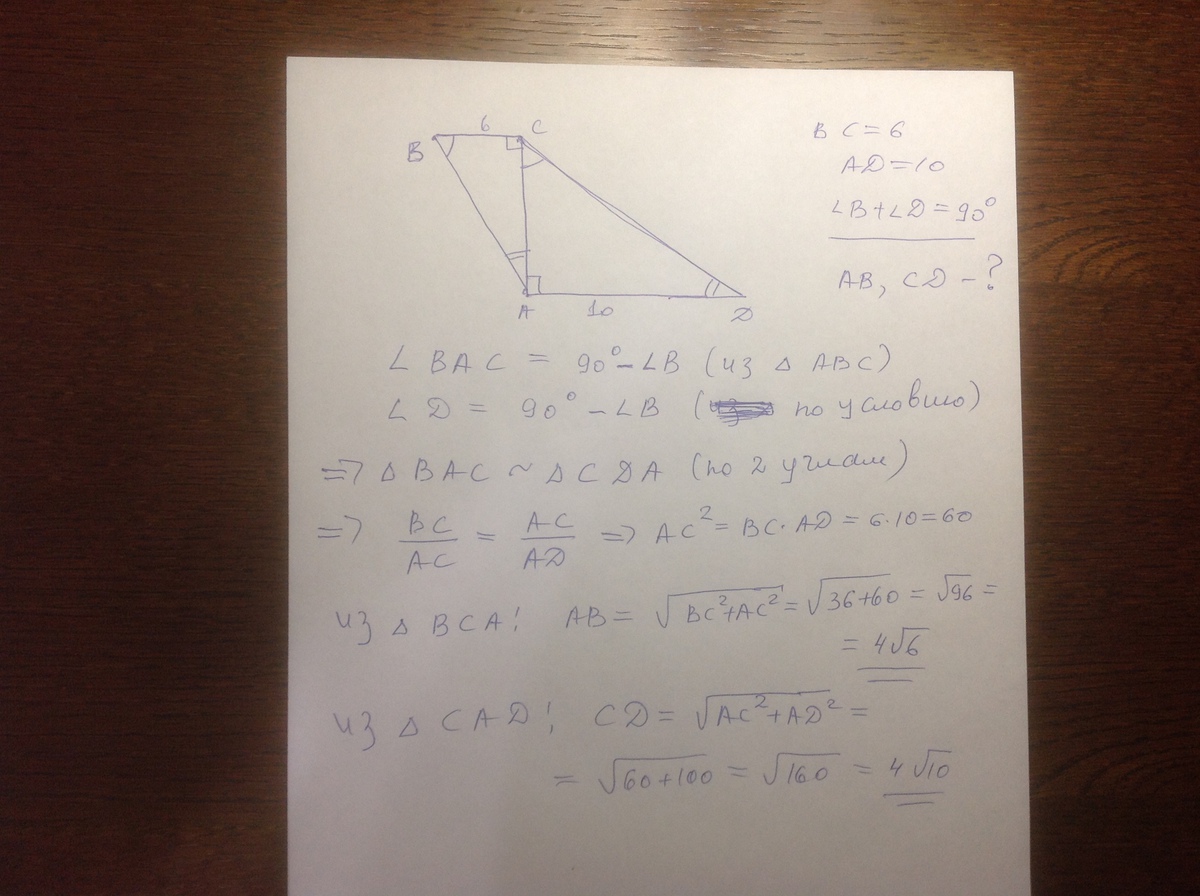 6 C
B
A 10 D
BC = 6
AD = 10
∠B + ∠D = 90°
AB, CD - ?
∠ BAC = 90° - ∠B (из △ ABC)
∠ D = 90° - ∠B ( по условию)
=> △ BAC ~ △ CDA (по 2 углам)
=> BC/AC = AC/AD => AC² = BC · AD = 6·10 = 60
из △ BCA: AB = √(BC²+AC²) = √(36+60) = √96 =
= 4√6
из △ CAD: CD = √(AC²+AD²) =
= √(60+100) = √160 = 4√10